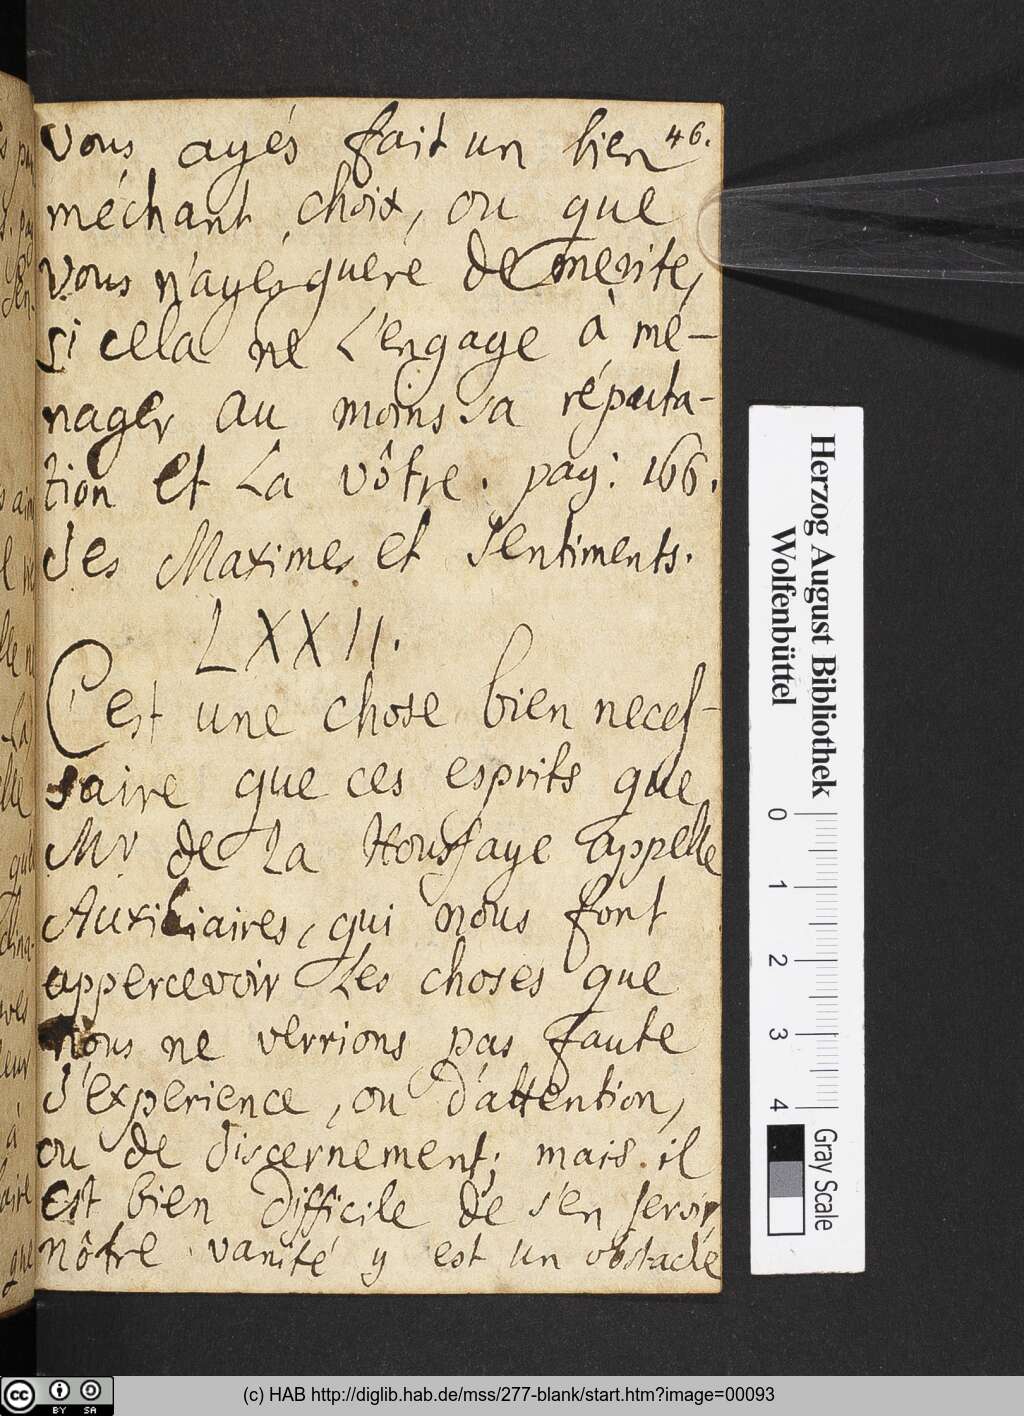 46.
vous ayés fait un bien
méchant choix, ou que
vous n'ayés guere de merite,
si cela ne l'engage à mé-
nager au moins sa réputa-
tion et la vôtre. pag: 166.
des Maximes et Sentiments.
LXXII.
C'est une chose bien neces-
saire que ces esprits que
Mr de la Houssaye appelle
Auxiliaires, qui nous font
appercevoir les choses que
nous ne verrions pas faute
d'experience, ou d'attention,
ou de discernement; mais il
est bien difficile de s'en servir,
nôtre vanité y est un obstacle
Herzog August Bibliothek
Wolfenbüttel
0 1 2 3 4
Gray Scale
(c) HAB http://diglib.hab.de/mss/277-blank/start.htm?image=00093
cc BY SA